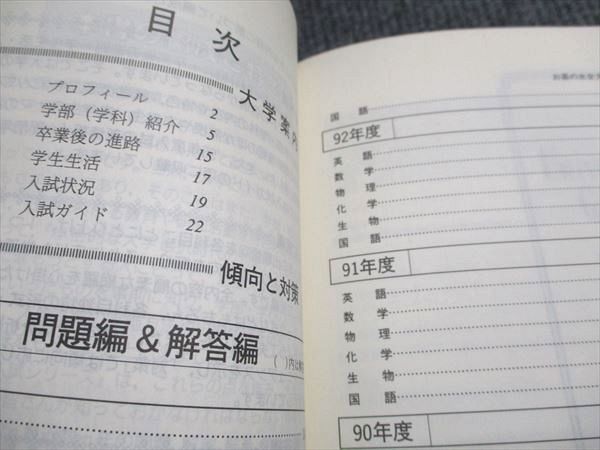 目次
大学案内
プロフィール 2
学部（学科）紹介 5
卒業後の進路 15
学生生活 17
入試状況 19
入試ガイド 22
傾向と対策
問題編&解答編
( )内は
お茶の水女
国語
92年度
英語
数学
物理
化学
生物
国語
91年度
英語
数学
物理
化学
生物
国語
90年度